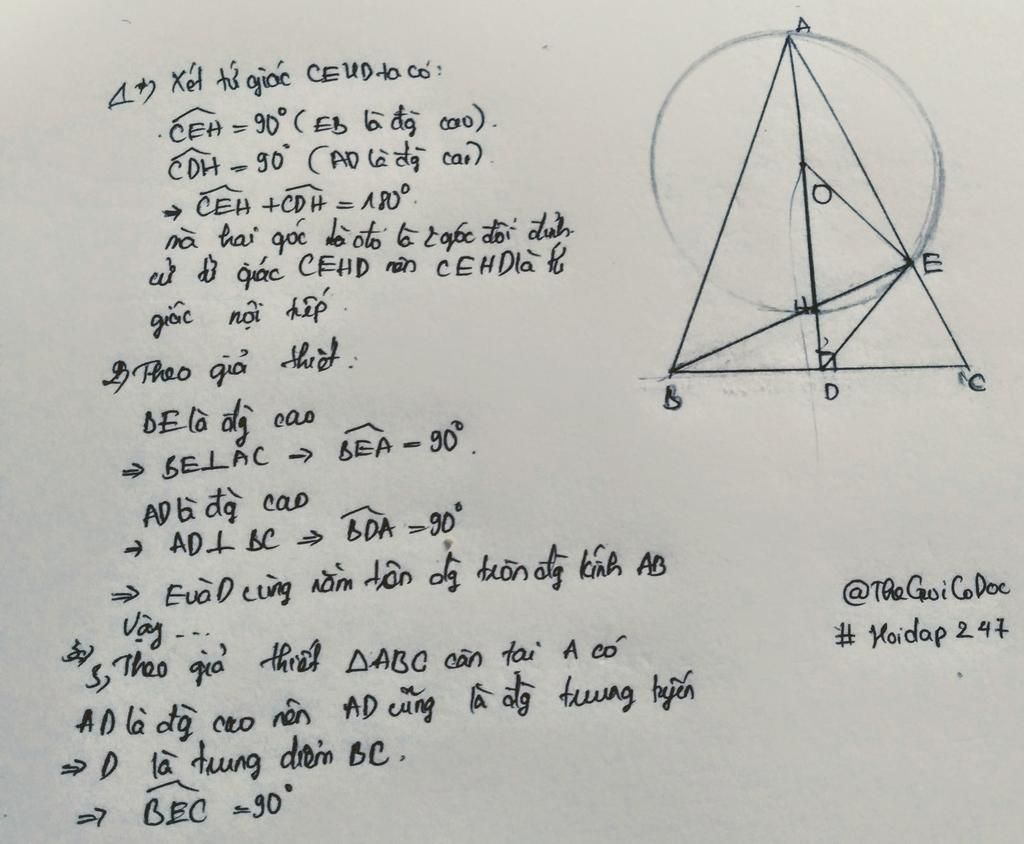 1, *) Xét tứ giác CEHD ta có:
CEH = 90° (EB là đg cao).
CDH = 90° (AD là đg cao).
⇒ CEH + CDH = 180°.
mà hai góc là 2 góc đối đỉnh
tứ giác CEHD nên CEHD là
giác nội tiếp.
2, Theo giả thiết:
BE là đg cao
⇒ BE⊥AC → BEA = 90°.
AD là đg cao
→ AD⊥ BC ⇒ BDA = 90°
⇒ E và D cùng nằm trên đg tròn đg kính AB
Vậy ...
3, Theo giả thiết △ABC cân tại A có
AD là đg cao nên AD cũng là đg trung tuyến
⇒ D là trung điểm BC.
⇒ BEC = 90°
A
O
E
H
B
D
C
@TheGuiCoDoc
# Hoidap 247